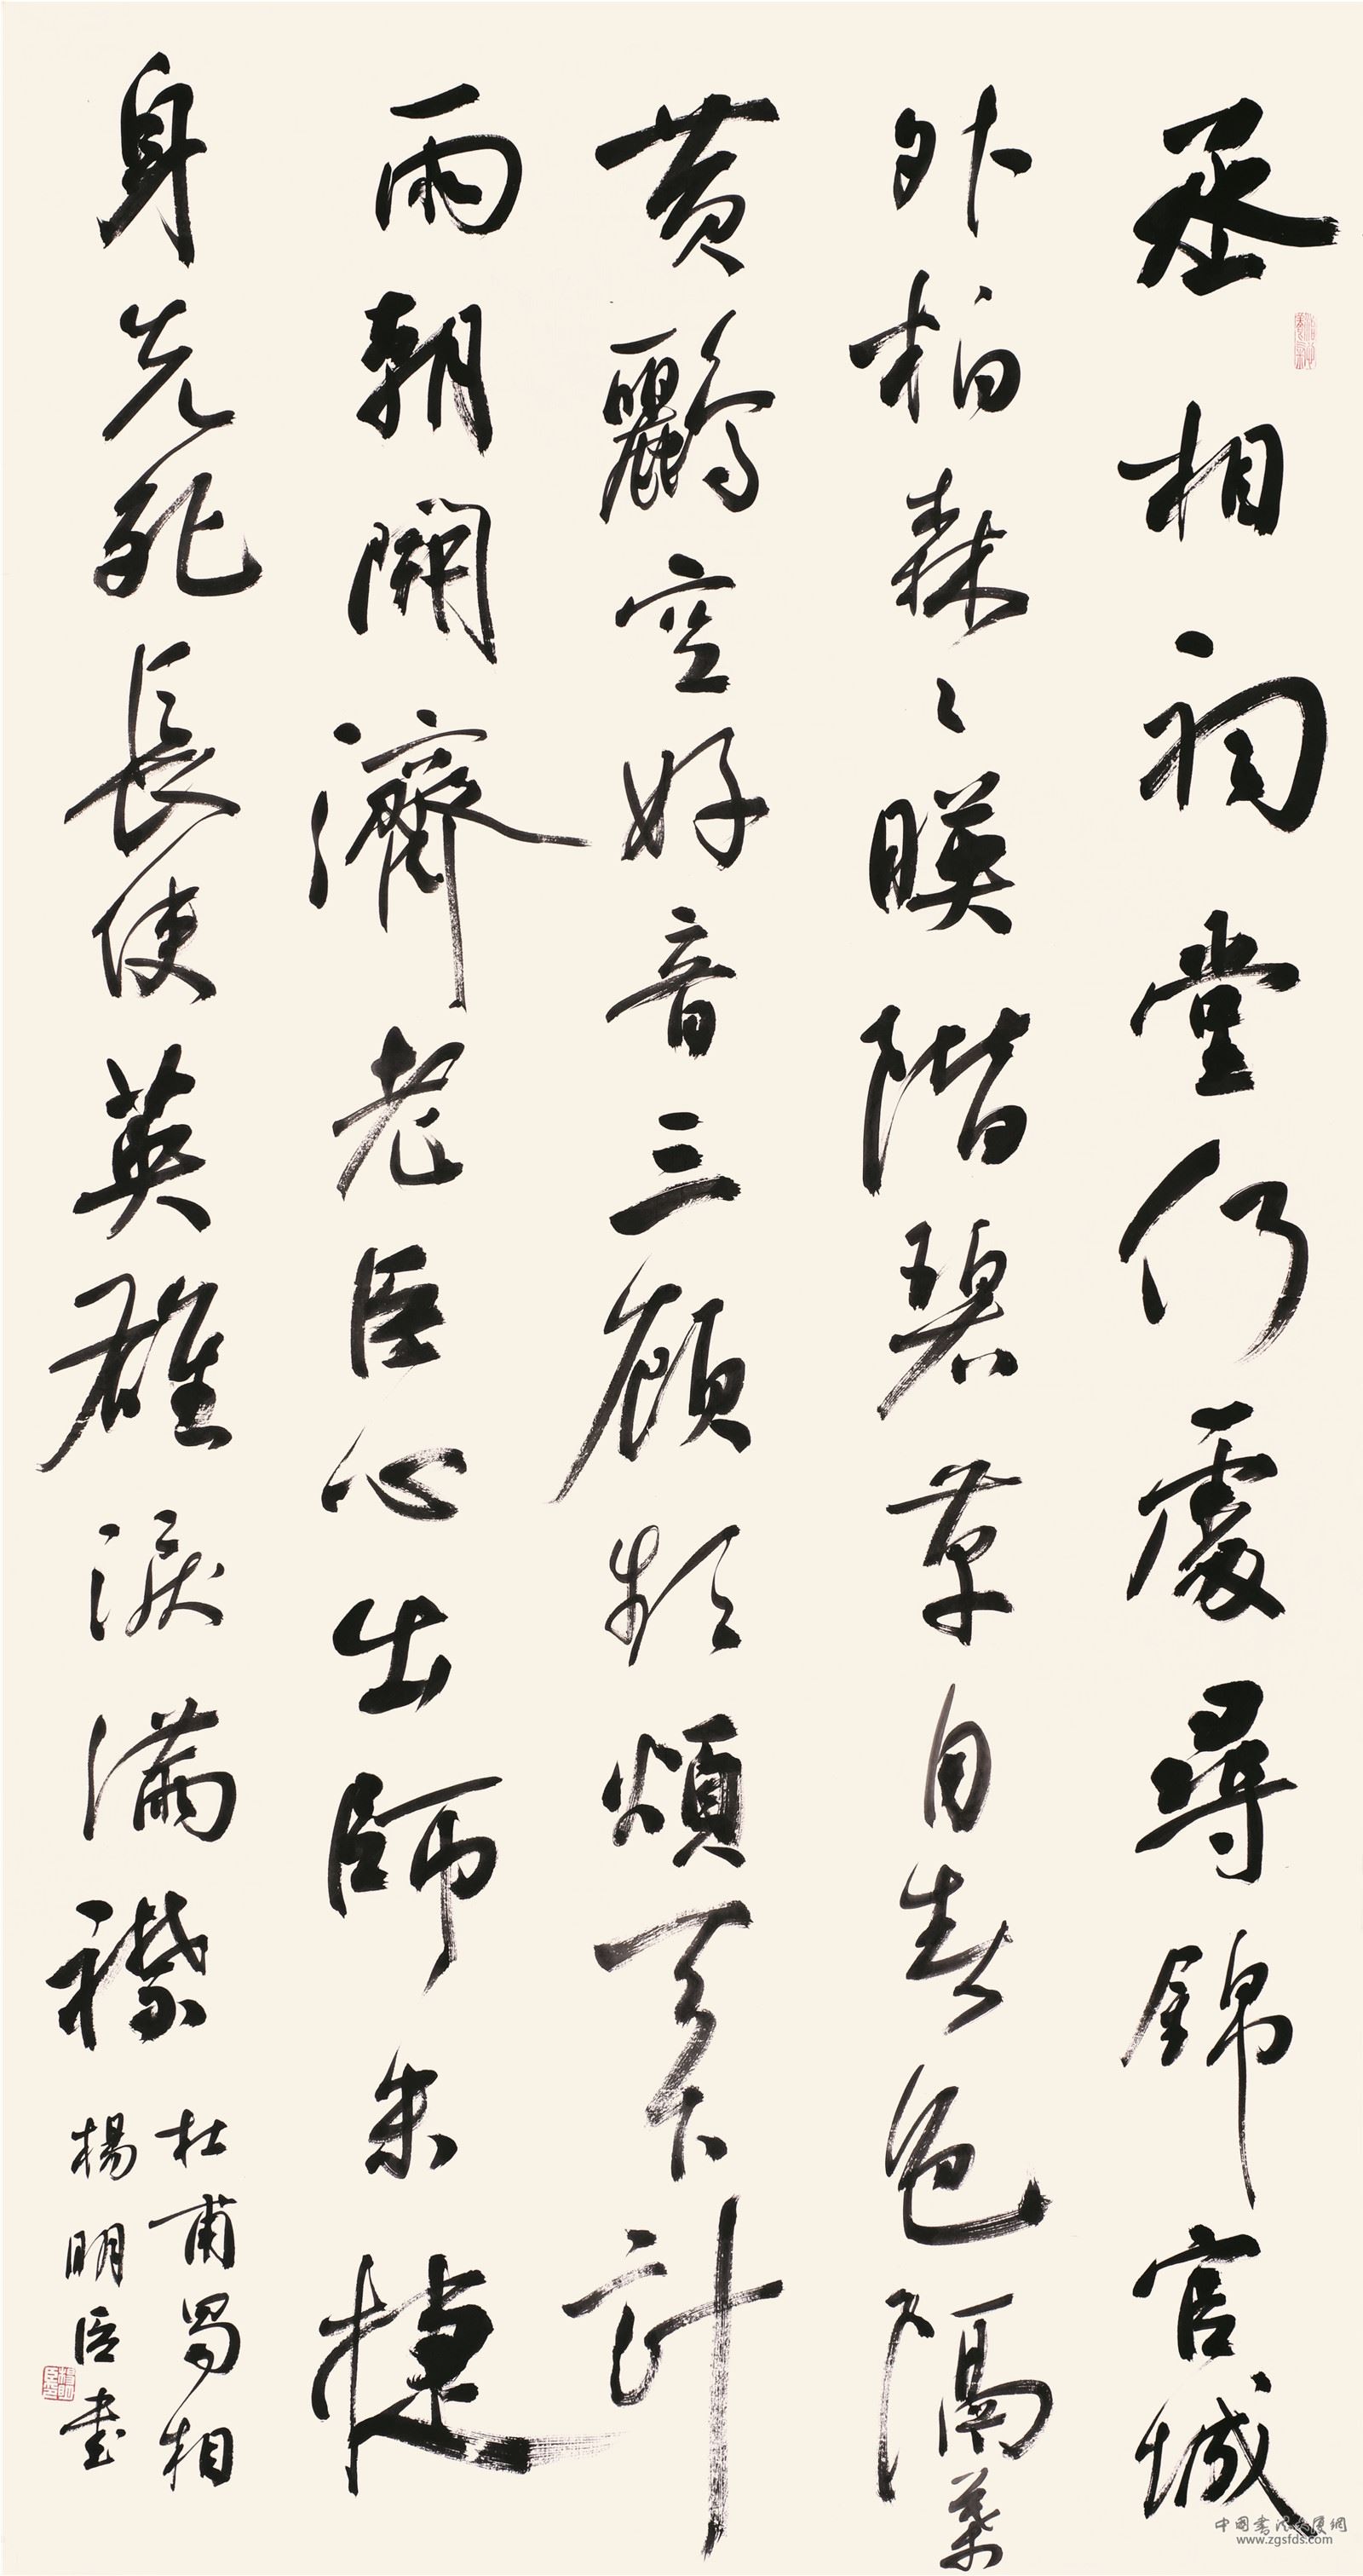 丞相祠堂何處尋錦官城
外柏森々暎階碧草自春色隔葉
黄鸝空好音三顧頻煩天下計
兩朝開濟老臣心出師未捷
身先死長使英雄淚滿襟
杜甫蜀相
楊明臣書
中国书法为展網
www.zgsfds.com